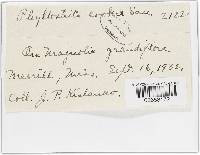 Phyllosticta cookei Sacc. 2122.
On Magnolia grandiflora.
Merrill, Miss. Sept. 16, 1932.
Coll. J. P. Kislanko